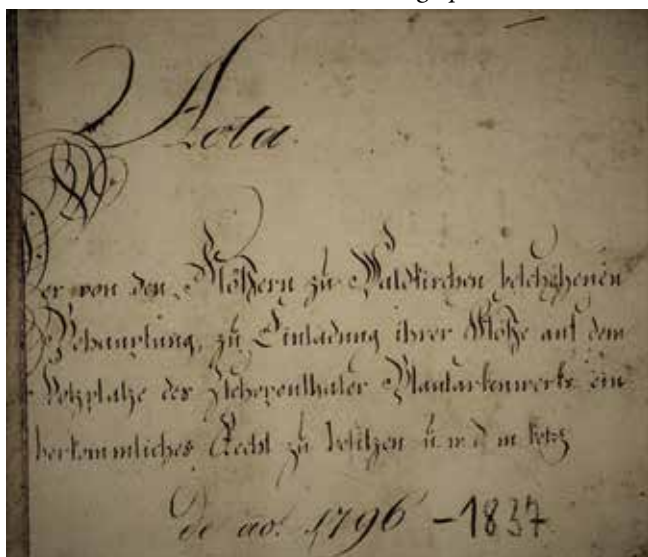 Acta.
Der von den Flößern zu Waldkirchen beschehenen
Behauptung, zu Einladung ihrer Flöße auf dem
Holzplatze des Zschopenthaler Blaufarbenwerks ein
herkömmliches Recht zu besitzen u. w. d. m. betr.
de ao. 1796 - 1837